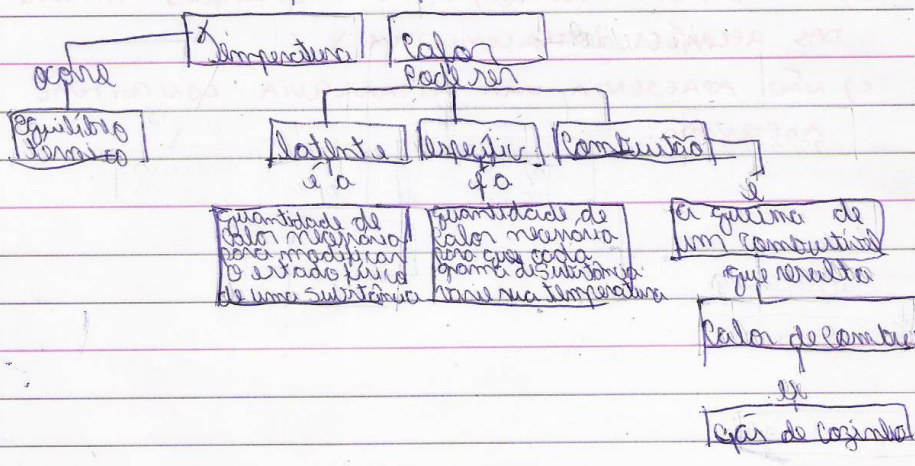 DAS
C) NÃO APRESENTA
Temperatura
Calor
ocorre
pode ser
Equilíbro
térmico
latente
específic
Combustão
é a
é a
é
quantidade de
calor necessária
para modificar
o estado físico
de uma substância
quantidade de
calor necessária
para que cada
grama de substância
varie sua temperatura
a queima de
um combustível
que resulta
Calor de combus
ex
gás de cozinha